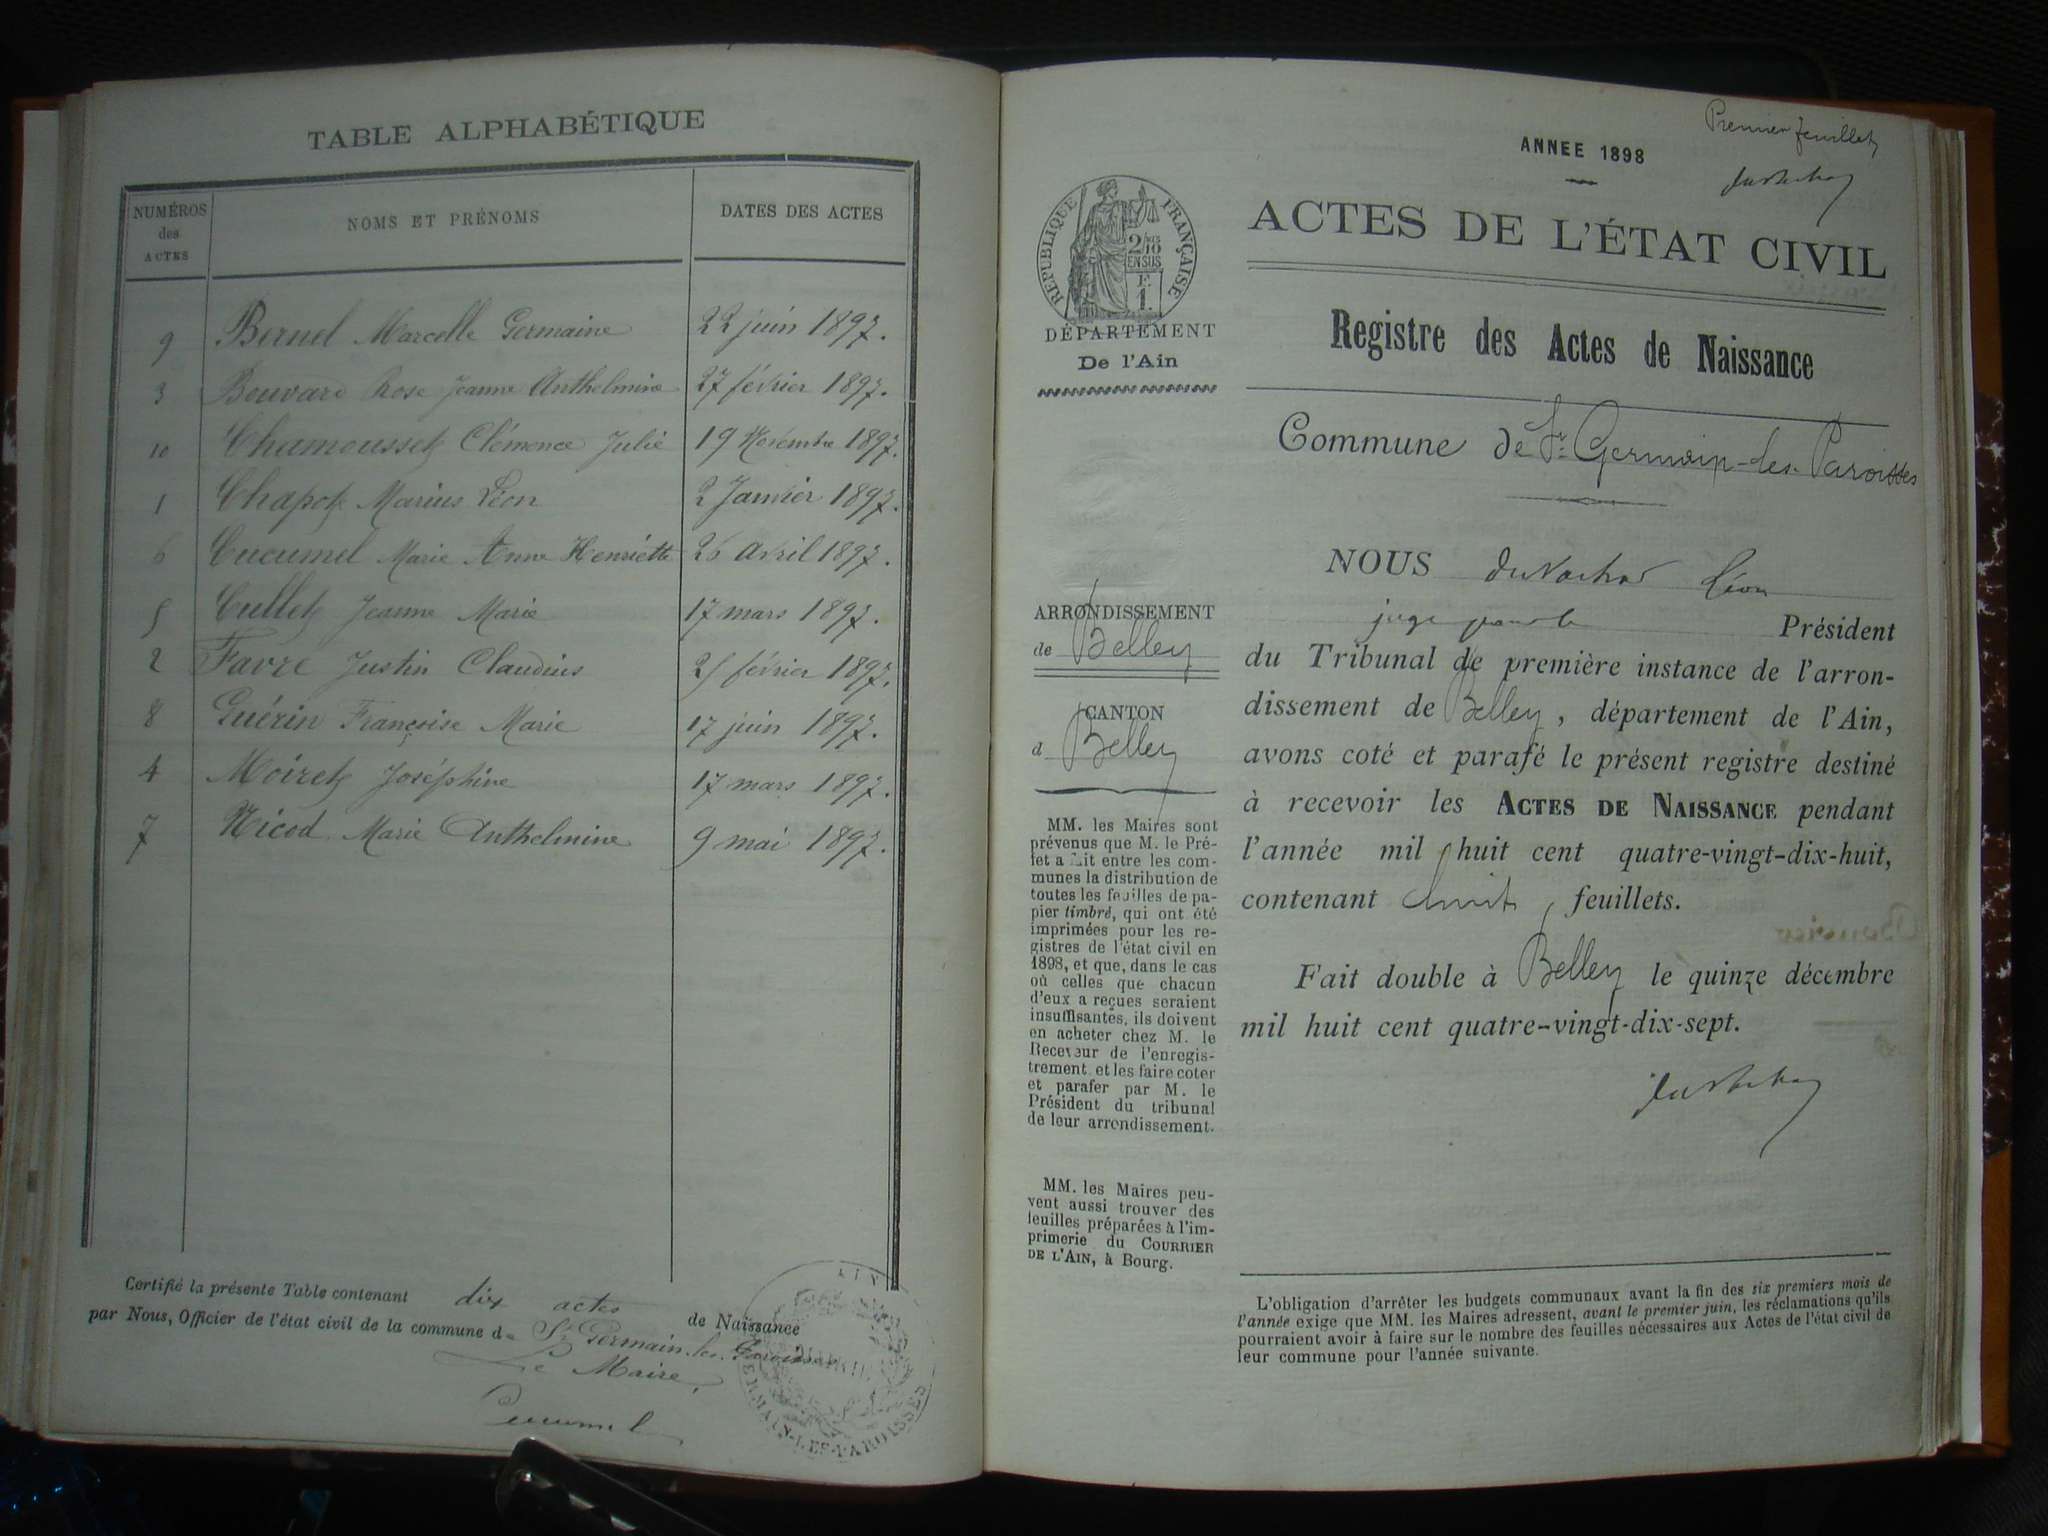 TABLE ALPHABÉTIQUE
NUMÉROS des ACTES
NOMS ET PRÉNOMS
DATES DES ACTES
9 Bernel Marcelle Germaine 22 juin 1897.
3 Bouvard Rose Jeanne Anthelmine 27 février 1897.
10 Chamousset Clémence Julie 19 Novembre 1897.
1 Chapot Marius Léon 2 Janvier 1897.
6 Cucumel Marie Anne Henriette 26 Avril 1897.
5 Cullet Jeanne Marie 17 mars 1897.
2 Favre Justin Claudius 25 février 1897.
8 Guérin Françoise Marie 17 juin 1897.
4 Moiret Joséphine 17 mars 1897.
7 Nicod Marie Anthelmine 9 mai 1897.
Certifié la présente Table contenant dix actes de Naissance
par Nous, Officier de l'état civil de la commune de St Germain-les-Paroisses
Le Maire,
Cucumel
AIN
GERMAIN-LES-PAROISSES
Premier feuillet
ANNEE 1898
ACTES DE L'ÉTAT CIVIL
RÉPUBLIQUE FRANÇAISE
2/10 EN SUS
F.
1.
DÉPARTEMENT
De l'Ain
Registre des Actes de Naissance
Commune de St Germain-les-Paroisses
NOUS Léon
juge Président
du Tribunal de première instance de l'arron-
dissement de Belley, département de l'Ain,
avons coté et parafé le présent registre destiné
à recevoir les ACTES DE NAISSANCE pendant
l'année mil huit cent quatre-vingt-dix-huit,
contenant huit feuillets.
Fait double à Belley le quinze décembre
mil huit cent quatre-vingt-dix-sept.
ARRONDISSEMENT
de Belley
CANTON
d Belley
MM. les Maires sont
prévenus que M. le Pré-
fet a fait entre les com-
munes la distribution de
toutes les feuilles de pa-
pier timbré, qui ont été
imprimées pour les re-
gistres de l'état civil en
1898, et que, dans le cas
où celles que chacun
d'eux a reçues seraient
insuffisantes, ils doivent
en acheter chez M. le
Receveur de l'enregis-
trement et les faire coter
et parafer par M. le
Président du tribunal
de leur arrondissement.
MM. les Maires peu-
vent aussi trouver des
feuilles préparées à l'im-
primerie du COURRIER
DE L'AIN, à Bourg.
L'obligation d'arrêter les budgets communaux avant la fin des six premiers mois de
l'année exige que MM. les Maires adressent, avant le premier juin, les réclamations qu'ils
pourraient avoir à faire sur le nombre des feuilles nécessaires aux Actes de l'état civil de
leur commune pour l'année suivante.